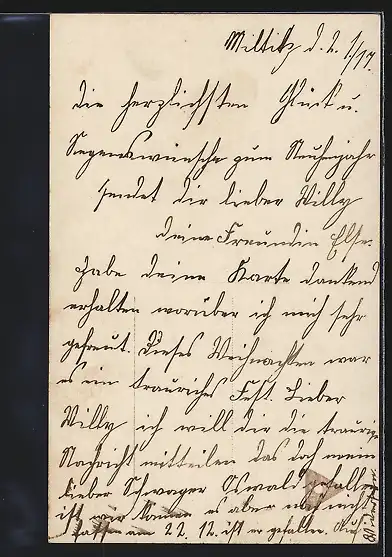 Miltitz d. 2. 1/17.
die herzlichsten Glück u.
Segenswünsche zum Neuenjahr
sendet dir lieber Willy
deine Freundin Else.
habe deine Karte dankend
erhalten worüber ich mich sehr
gefreut. Dieses Weihnachten war
es ein trauriches Fest. Lieber
Willy ich will dir die traurige
Nachricht mitteilen das doch mein
lieber Schwager Oswald gefallen
ist wir können es aber noch nicht
fassen am 22. 12. ist er gefallen. Auf